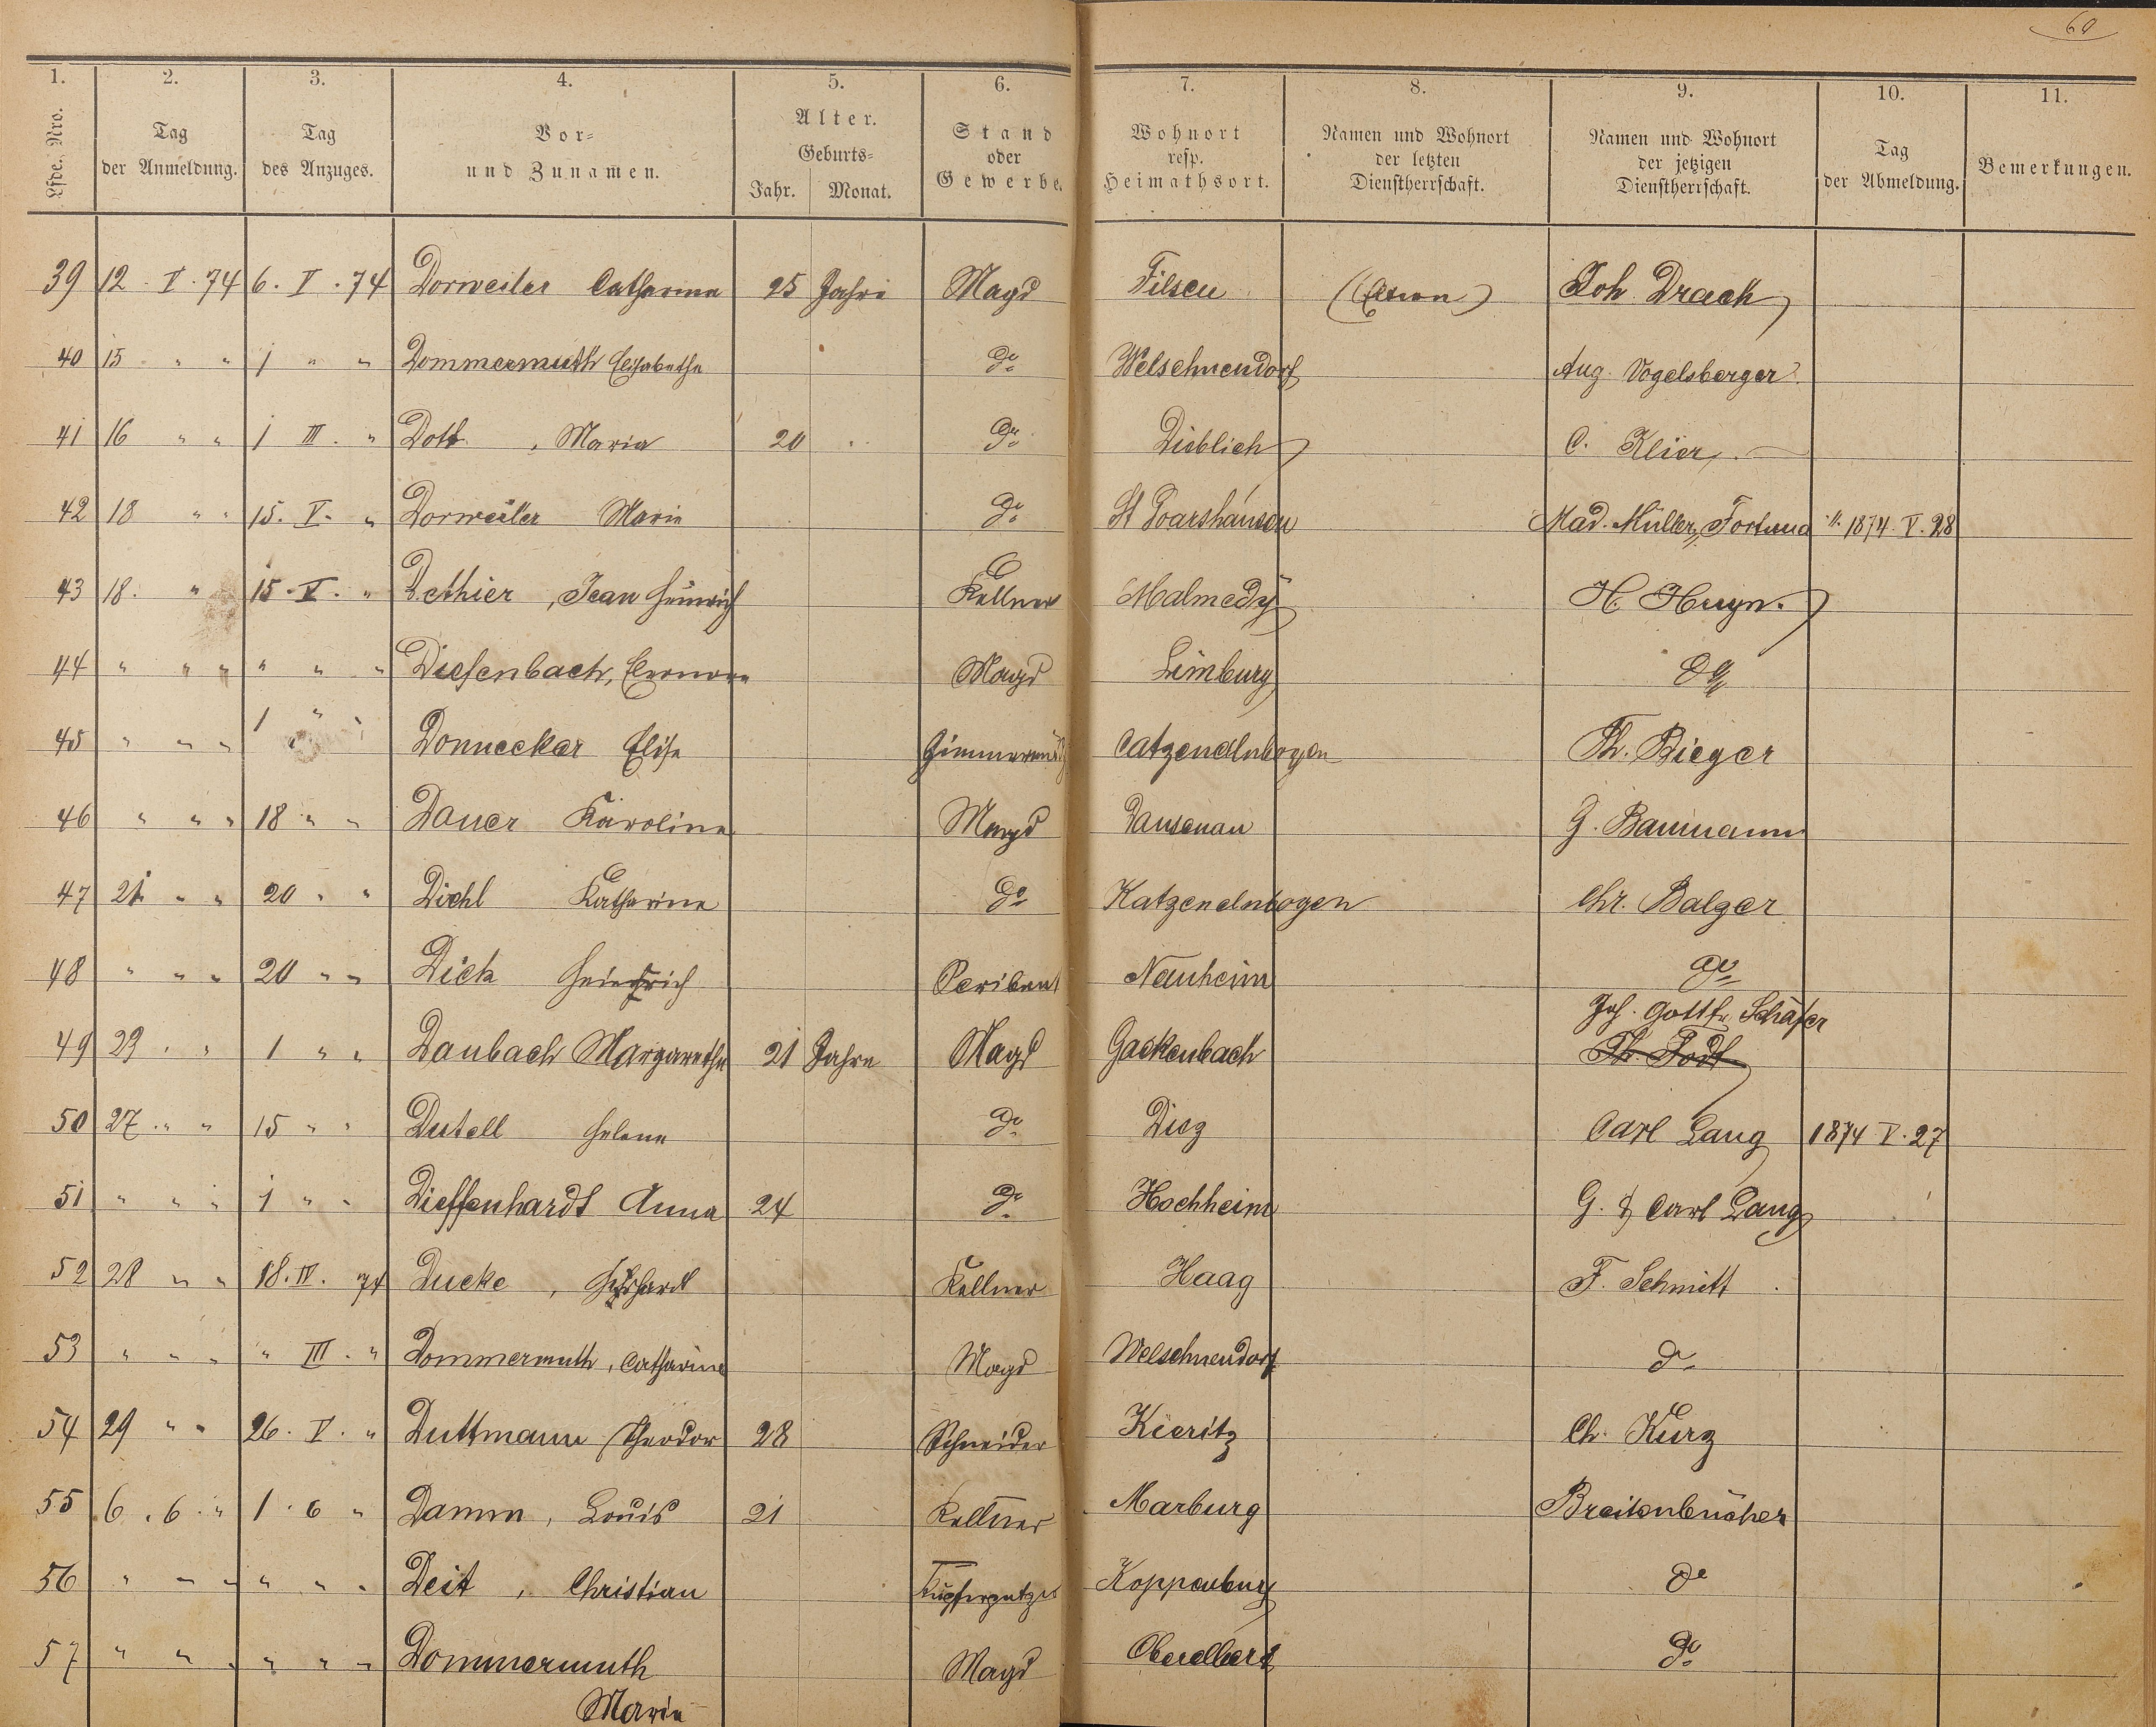 60
1. 2. 3. 4. 5. 6. 7. 8. 9. 10. 11.
Lfde. Nro. Tag der Anmeldung. Tag des Anzuges. Vor- und Zunamen. Alter. Geburts- Jahr. Monat. Stand oder Gewerbe. Wohnort resp. Heimathsort. Namen und Wohnort der letzten Dienstherrschaft. Namen und Wohnort der jetzigen Dienstherrschaft. Tag der Abmeldung. Bemerkungen.
39 12. V. 74 6. V. 74 Dorweiler Catharina 25 Jahre Magd Filsen Joh. Drack
40 15 " " 1 " " Dommermuth Elisabetha do Welschneudorf Aug. Vogelsberger
41 16 " " 1 III. " Dott, Maria 20 " do Dieblich C. Klier
42 18 " " 15. V. " Dorweiler Maria do St Goarshausen Mad. Müller, Fortuna 1874. V. 28
43 18. " 15. V. " Dethier, Jean Heinrich Kellner Malmedy H. Huyn.
44 " " " " " " Diefenbach, Magd Limburg do
45 " " " 1 " " Donnecker Elise Catzenelnbogen Th. Bieger
46 " " " 18 " " Dauer Karoline Magd Dausenau G. Baumann
47 21 " " 20 " " Diehl Katharina do Katzenelnbogen Chr. Balzer
48 " " " 20 " " Dick Heinrich Scribent Nauheim do
Joh. Gottfr. Schäfer
49 29 " " 1 " " Daubach Margaretha 21 Jahre Magd Gackenbach Th. Todt
50 27 " " 15 " " Dutell Helene do Diez Carl Lang 1874 V. 27
51 " " " 1 " " Dieffenhardt Anna 24 do Hochheim G. & Carl Lang
52 28 " " 18. IV. 74 Ducke, Kellner Haag F. Schmitt
53 " " " " III. " Dommermuth, Catharina Magd Welschneudorf do
54 29 " " 26. V. " Duttmann Theodor 28 Schneider Kieritz Ch. Kurz
55 6. 6. " 1. 6 " Damm, Louis 21 Kellner Marburg Breitenbücher
56 " " " " " " Deit, Christian Kupferputzer Koppenburg do
57 " " " " " " Dommermuth Magd Oberelbert do
Maria